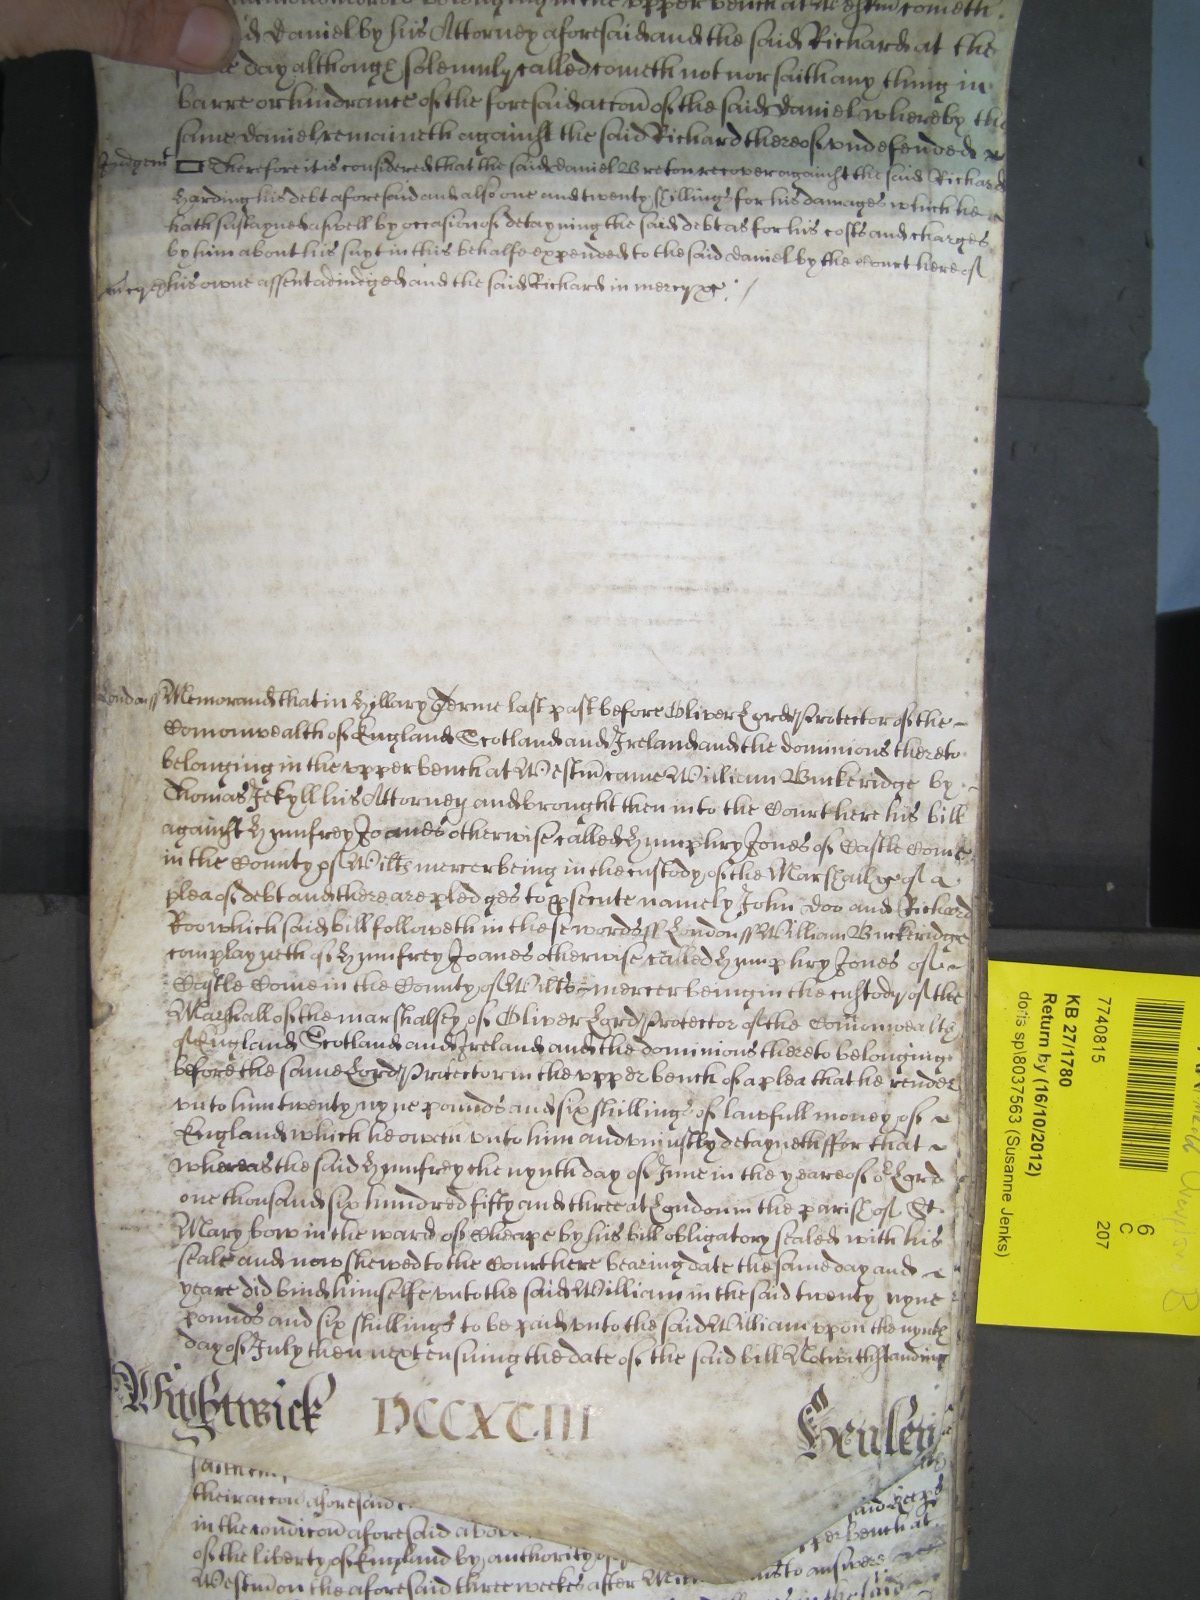 belonging in the upper bench at Westm cometh
said Daniel by his Attorney aforesaid and the said Richard at the
same day although solemnly called cometh not nor saith any thing in
barre or hindrance of the foresaid accon of the said Daniel whereby the
same Daniel remaineth against the said Richard thereof undefended
Judgmt Therefore it is considered that the said Daniel Breton recover against the said Richard
Harding his debt aforesaid and also one and twenty shillings for his damages which he
hath sustayned aswell by occasion of detayning the said debt as for his costs and charges
by him about his suyt in this behalfe expended to the said Daniel by the Court here of
mercy his owne assent adiudged and the said Richard in mercy &c
London ss Memorand that in Hillary Terme last past before Oliver Lord Protector of the
Comonwealth of England Scotland and Ireland and the dominions thereto
belonging in the upper bench at Westm came William Buckeridge by
Thomas Jekyll his Attorney and brought then into the Court here his bill
against Humfrey Joanes otherwise called Humphry Jones of Castle Come
in the County of Wilts mercer being in the custody of the Marshall &c of a
plea of debt and there are pledges to psecute namely John Doo and Richard
Roo which said bill followeth in these words ss London ss William Buckeridge
complayneth of Humfrey Joanes otherwise called Humphry Jones of
Castle Come in the County of Wilts mercer being in the custody of the
Marshall of the marshalsey of Oliver Lord Protector of the Comonwealth
of England Scotland and Ireland and the dominions thereto belonging
before the same Lord Protector in the upper bench of a plea that he render
unto him twenty nyne pounds and six shillings of lawfull money of
England which he oweth unto him and uniustly detayneth ffor that
whereas the said Humfrey the nynth day of June in the yeare of or Lord
one thousand six hundred fifty and three at London in the parish of St
Mary bow in the ward of Cheape by his bill obligatory sealed with his
seale and now shewed to the Court here bearing date the same day and
yeare did bind himselfe unto the said William in the said twenty nyne
pounds and six shillings to be paid unto the said William upon the nynth
day of July then next ensuing the date of the said bill Notwithstanding
Wightwick DCCXCIII Henley
their accon aforesaid
in the condicon aforesaid above
of the liberty of England by authority of
Westm on the aforesaid three weekes after
to answere
7740815
KB 27/1780
Return by (16/10/2012)
doris sp\8037563 (Susanne Jenks)
6
C
207